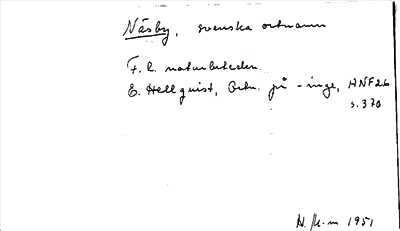 Näsby, svenska ortnamn
F. l. naturbeteckn.
E. Hellquist, Ortn. på -inge, HNF 26
s. 370
H. M-m 1951